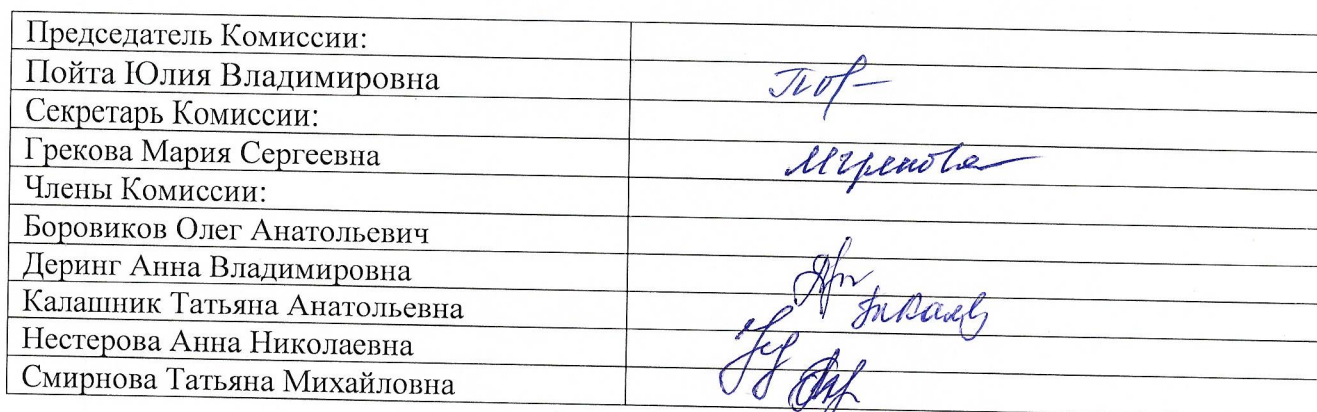 Председатель Комиссии:
Пойта Юлия Владимировна
Секретарь Комиссии:
Грекова Мария Сергеевна
Члены Комиссии:
Боровиков Олег Анатольевич
Деринг Анна Владимировна
Калашник Татьяна Анатольевна
Нестерова Анна Николаевна
Смирнова Татьяна Михайловна